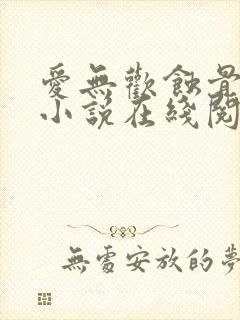 愛無歡蝕
小説在綫閱
無處安放的夢